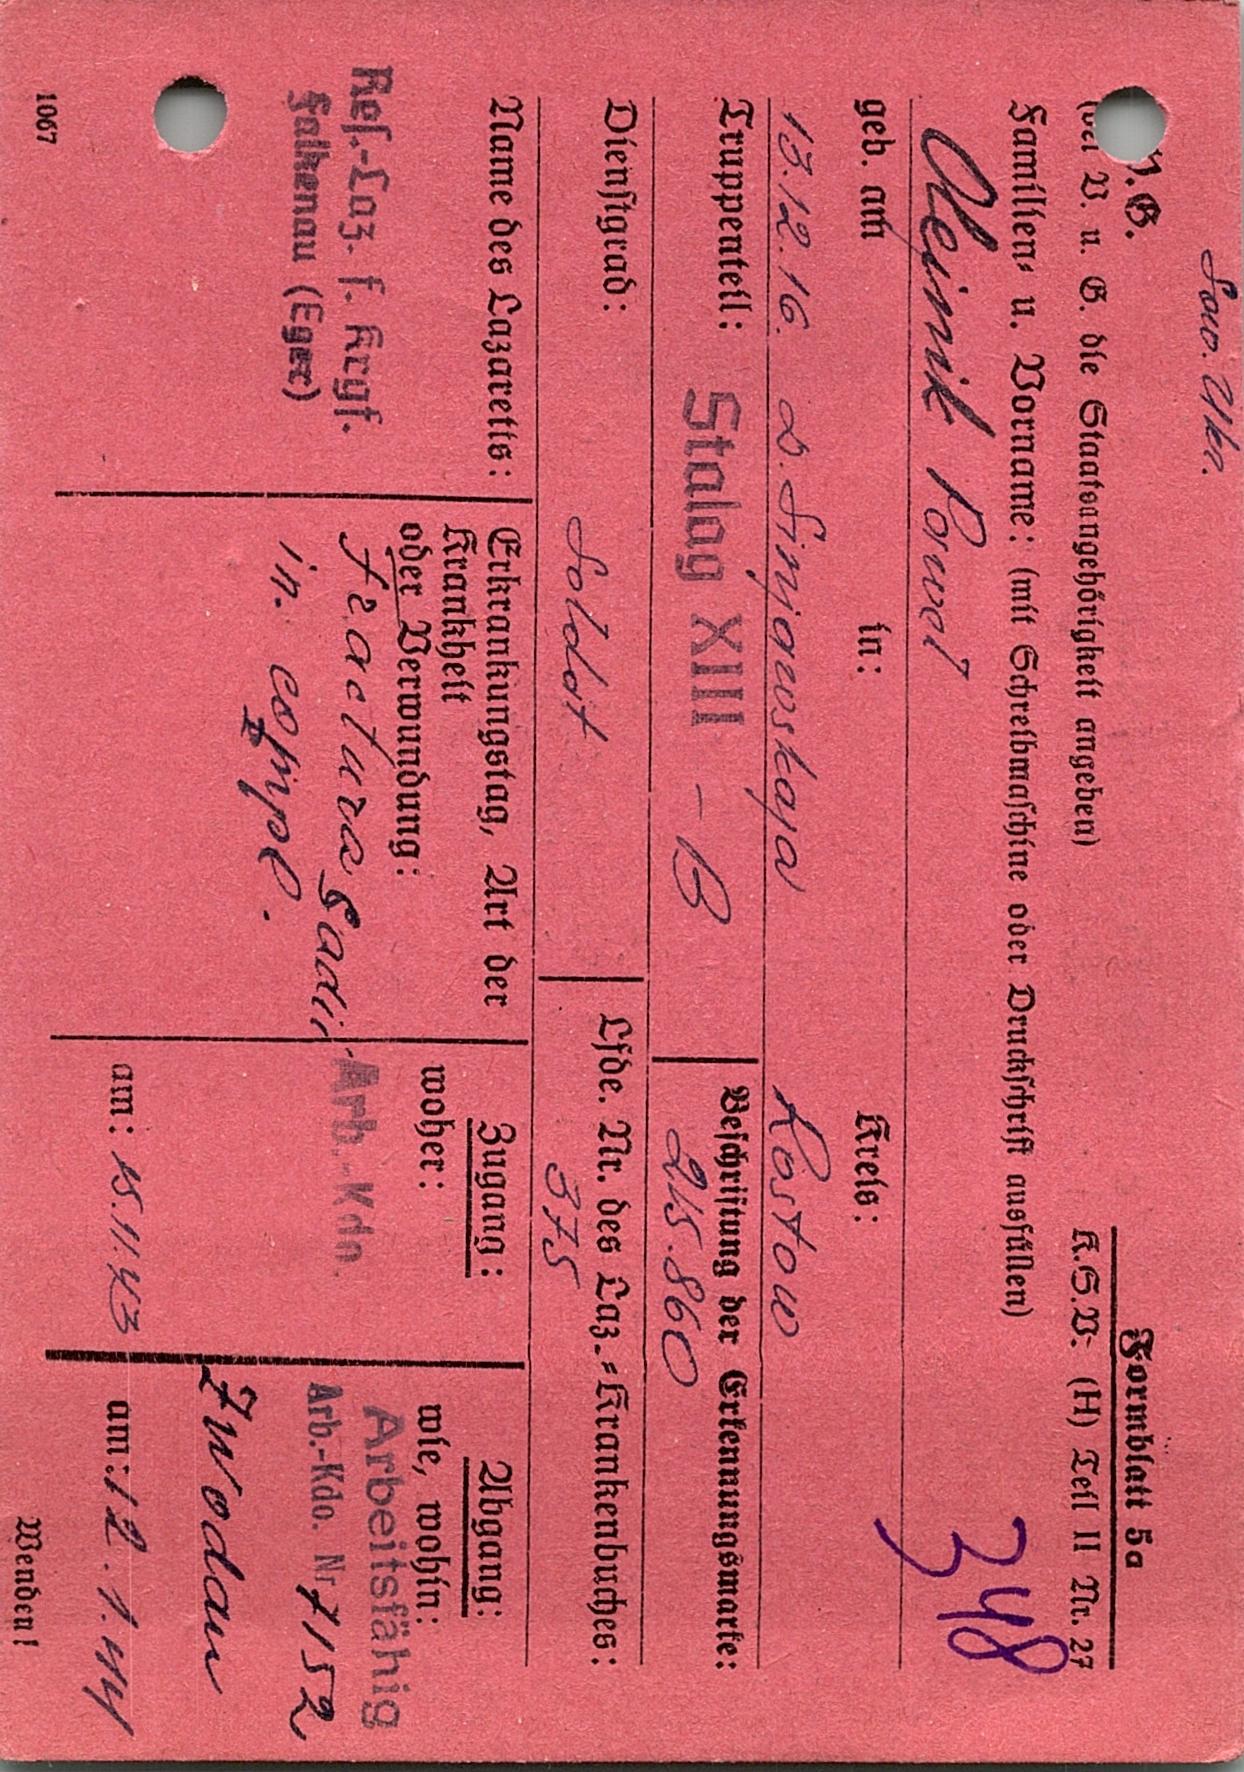 Sow. Ukr.
Formblatt 5a
K.S.V. (H) Teil II Nr. 27
(bei V. u. G. die Staatsangehörigkeit angeben)
348
Familien- u. Vorname: (mit Schreibmaschine oder Druckschrift ausfüllen)
Olejnik Pawel
geb. am in: Kreis:
13.12.16. D. Sinjawskaja Rostow
Truppenteil: Stalag XIII - B
Beschriftung der Erkennungsmarke:
215.860
Dienstgrad: Soldat
Lfde. Nr. des Laz.-Krankenbuches:
375
Name des Lazaretts:
Res.-Laz. f. Krgf.
Falkenau (Eger)
Erkrankungstag, Art der
Krankheit
oder Verwundung:
Fractura Radii
in. compl.
Zugang:
woher:
Arb.-Kdo.
am: 15.11.43
Abgang:
wie, wohin:
Arbeitsfähig
Arb.-Kdo. Nr 7152
Zwodau
am: 12.1.44
1067
Wenden!